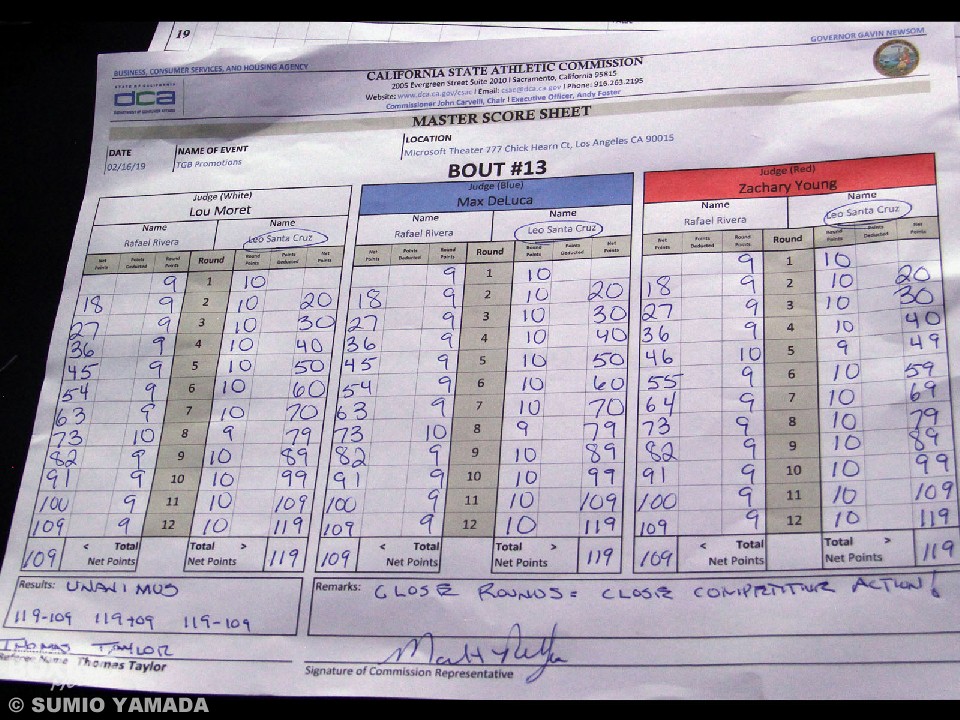 19
GOVERNOR GAVIN NEWSOM
BUSINESS, CONSUMER SERVICES, AND HOUSING AGENCY
dca
CALIFORNIA STATE ATHLETIC COMMISSION
2005 Evergreen Street Suite 2010 | Sacramento, California 95815
Website: www.dca.ca.gov/csac | Email: csac@dca.ca.gov | Phone: 916.263.2195
Commissioner John Carvelli, Chair | Executive Officer, Andy Foster
MASTER SCORE SHEET
DATE NAME OF EVENT LOCATION
02/16/19 TGB Promotions Microsoft Theater 777 Chick Hearn Ct, Los Angeles CA 90015
BOUT #13
Judge (White) Judge (Blue) Judge (Red)
Lou Moret Max DeLuca Zachary Young
Name Name Name Name Name Name
Rafael Rivera Leo Santa Cruz Rafael Rivera Leo Santa Cruz Rafael Rivera Leo Santa Cruz
Net Points Points Deducted Round Points Round Round Points Points Deducted Net Points Net Points Points Deducted Round Points Round Round Points Points Deducted Net Points Net Points Points Deducted Round Points Round Round Points Points Deducted Net Points
9 1 10 9 1 10 9 1 10
18 9 2 10 20 18 9 2 10 20 18 9 2 10 20
27 9 3 10 30 27 9 3 10 30 27 9 3 10 30
36 9 4 10 40 36 9 4 10 40 36 9 4 10 40
45 9 5 10 50 45 9 5 10 50 46 10 5 9 49
54 9 6 10 60 54 9 6 10 60 55 9 6 10 59
63 9 7 10 70 63 9 7 10 70 64 9 7 10 69
73 10 8 9 79 73 10 8 9 79 73 9 8 10 79
82 9 9 10 89 82 9 9 10 89 82 9 9 10 89
91 9 10 10 99 91 9 10 10 99 91 9 10 10 99
100 9 11 10 109 100 9 11 10 109 100 9 11 10 109
109 9 12 10 119 109 9 12 10 119 109 9 12 10 119
109 < Total Net Points Total > Net Points 119 109 < Total Net Points Total > Net Points 119 109 < Total Net Points Total > Net Points 119
Results: UNANIMUS
119-109 119-109 119-109
Remarks: CLOSE ROUNDS = CLOSE COMPETITIVE ACTION!
THOMAS TAYLOR
Referee Name Thomas Taylor
Signature of Commission Representative
© SUMIO YAMADA